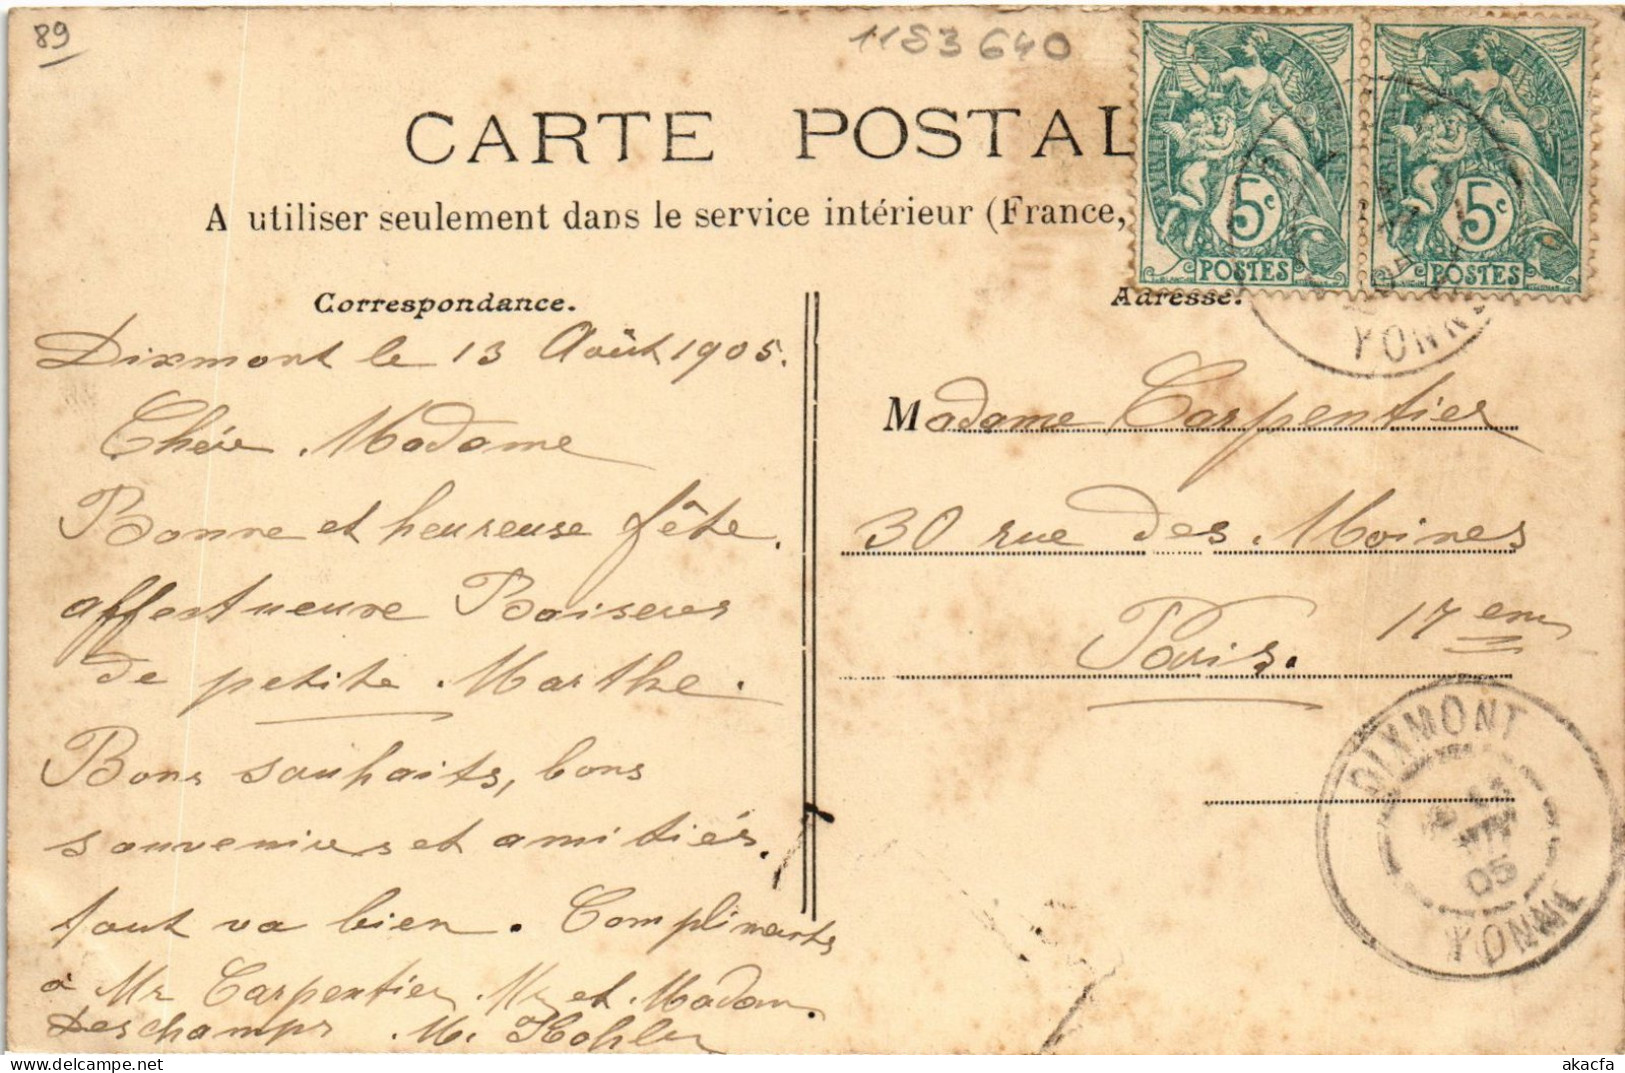 89
1183640
CARTE POSTAL
A utiliser seulement dans le service intérieur (France,
5c
POSTES
5c
POSTES
Correspondance.
Adresse.
YONNE
Dixmont le 13 Août 1905.
Chére Madame
Bonne et heureuse fête.
affectueuse Baiseres
de petite Marthe.
Bons souhaits, bons
souvenires et amitiés.
tout va bien. Complimants
à Mr Carpentier, Mr et Madam.
Deschamps M. Kohler
Madame Carpentier
30 rue des Moines
Paris. 17 em
DIXMONT
13
05
YONNE
akacfa